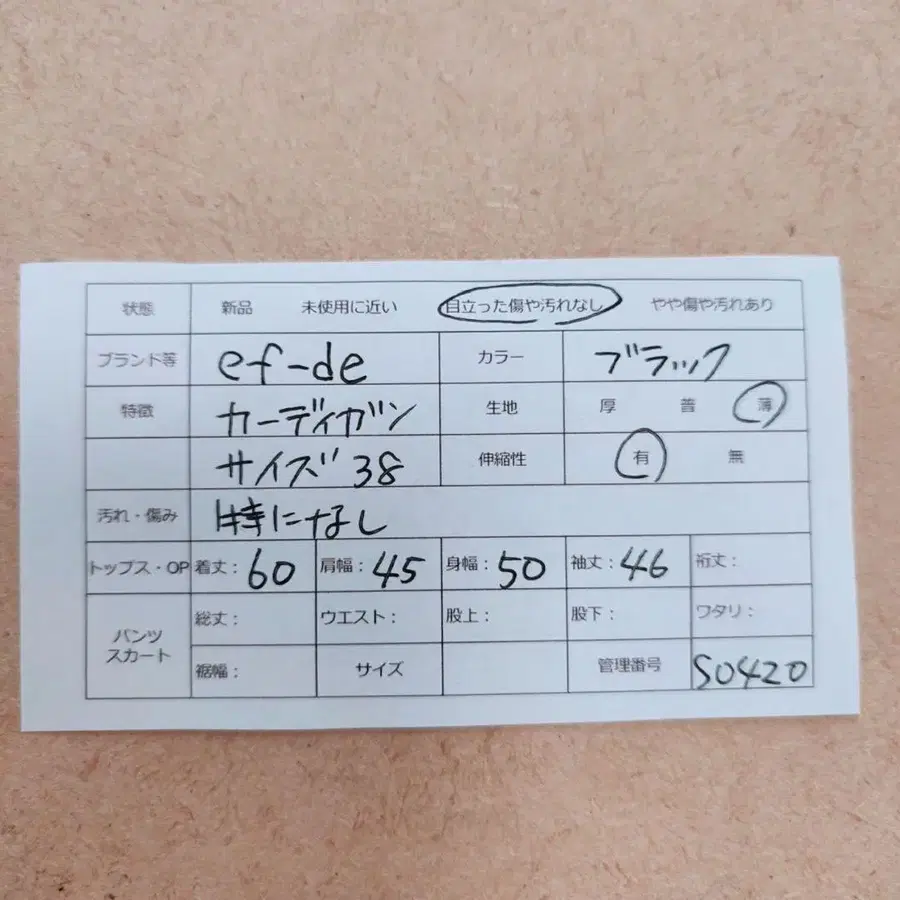 状態 新品 未使用に近い 目立った傷や汚れなし やや傷や汚れあり
ブランド等 ef-de カラー ブラック
特徴 カーディガン 生地 厚 普 薄
サイズ 38 伸縮性 有 無
汚れ・傷み 特になし
トップス・OP 着丈：60 肩幅：45 身幅：50 袖丈：46 裄丈：
パンツ スカート 総丈： ウエスト： 股上： 股下： ワタリ：
裾幅： サイズ 管理番号 S0420